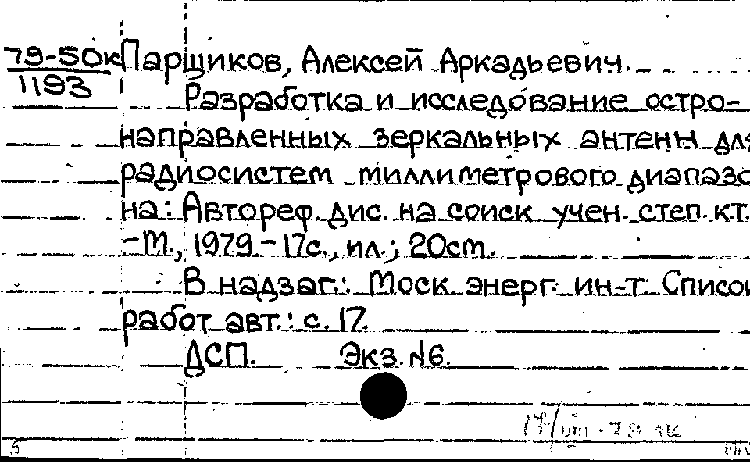 79-50к Парщиков, Алексей Аркадьевич.
1193
Разработка и исследование остро-
направленных зеркальных антенн для
радиосистем миллиметрового диапазо
на: Автореф. дис. на соиск. учен. степ. к.т.
-М., 1979.-17с., ил.; 20см.
В надзаг.: Моск. энерг. ин-т. Список
работ авт.: с. 17.
ДСП. Экз. №6.